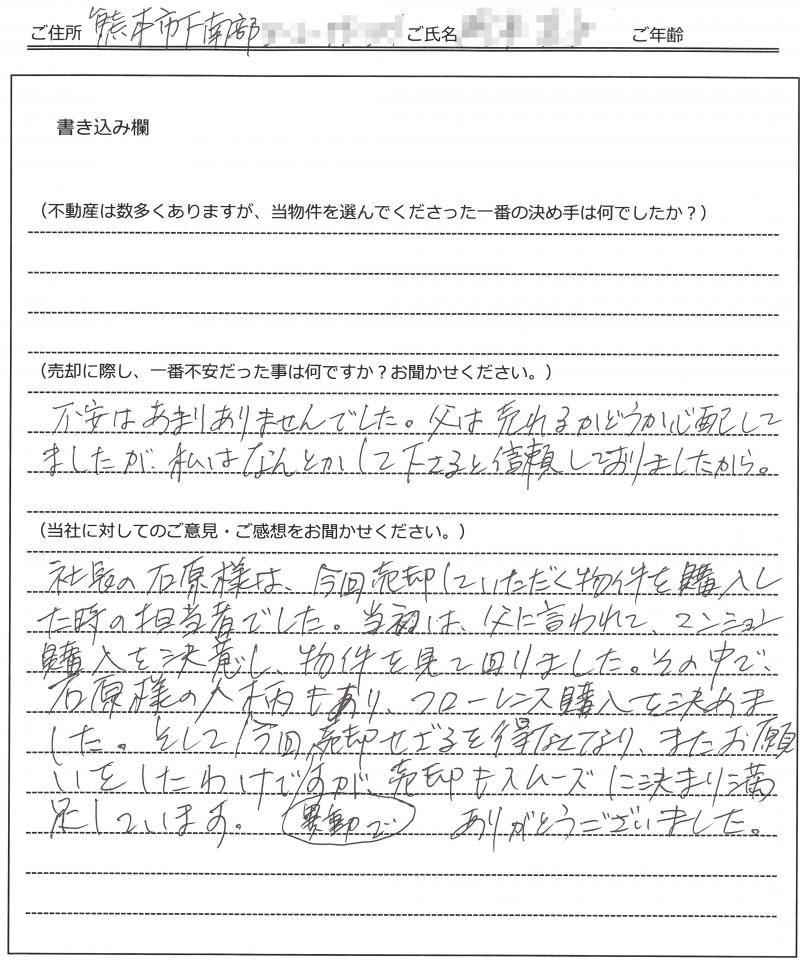 ご住所 熊本市下南部 ご氏名 ご年齢
書き込み欄
(不動産は数多くありますが、当物件を選んでくださった一番の決め手は何でしたか?)
(売却に際し、一番不安だった事は何ですか?お聞かせください。)
不安はあまりありませんでした。父は売れるかどうか心配して
ましたが、私はなんとかして下さると信頼しておりましたから。
(当社に対してのご意見・ご感想をお聞かせください。)
社長の石原様は、今回売却していただく物件を購入し
た時の担当者でした。当初は、父に言われて、マンション
購入を決意し、物件を見て回りました。その中で、
石原様の人柄もあり、フローレンス購入を決めま
した。そして今回売却せざるを得なくなり、またお願
いをしたわけですが、売却もスムーズに決まり満
足しています。 異動で ありがとうございました。